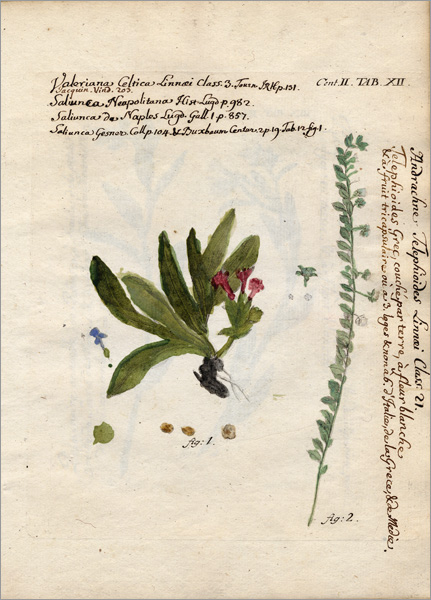 Valeriana Celtica Linnæi Class. 3. Tourn. IRH p. 131.
Jacquin. Vind. 203.
Cent II. TAB. XII
Saliunca Neapolitana Hist Lugd p. 982.
Saliunca de Naples Lugd. Gall. 1 p. 857.
Saliunca Gesner Coll p. 104 & Buxbaum Centur. 2 p 19. Tab. 12 fig 1.
Andrachne Telephioides Linnæi Class. 21.
Telephioides Grec, couché par terre, à fleur blanche
& à fruit tricapsulaire ou a 3. loges & non ab. d'Italie, de la Grece, & de Medie.
fig: 1.
fig: 2.